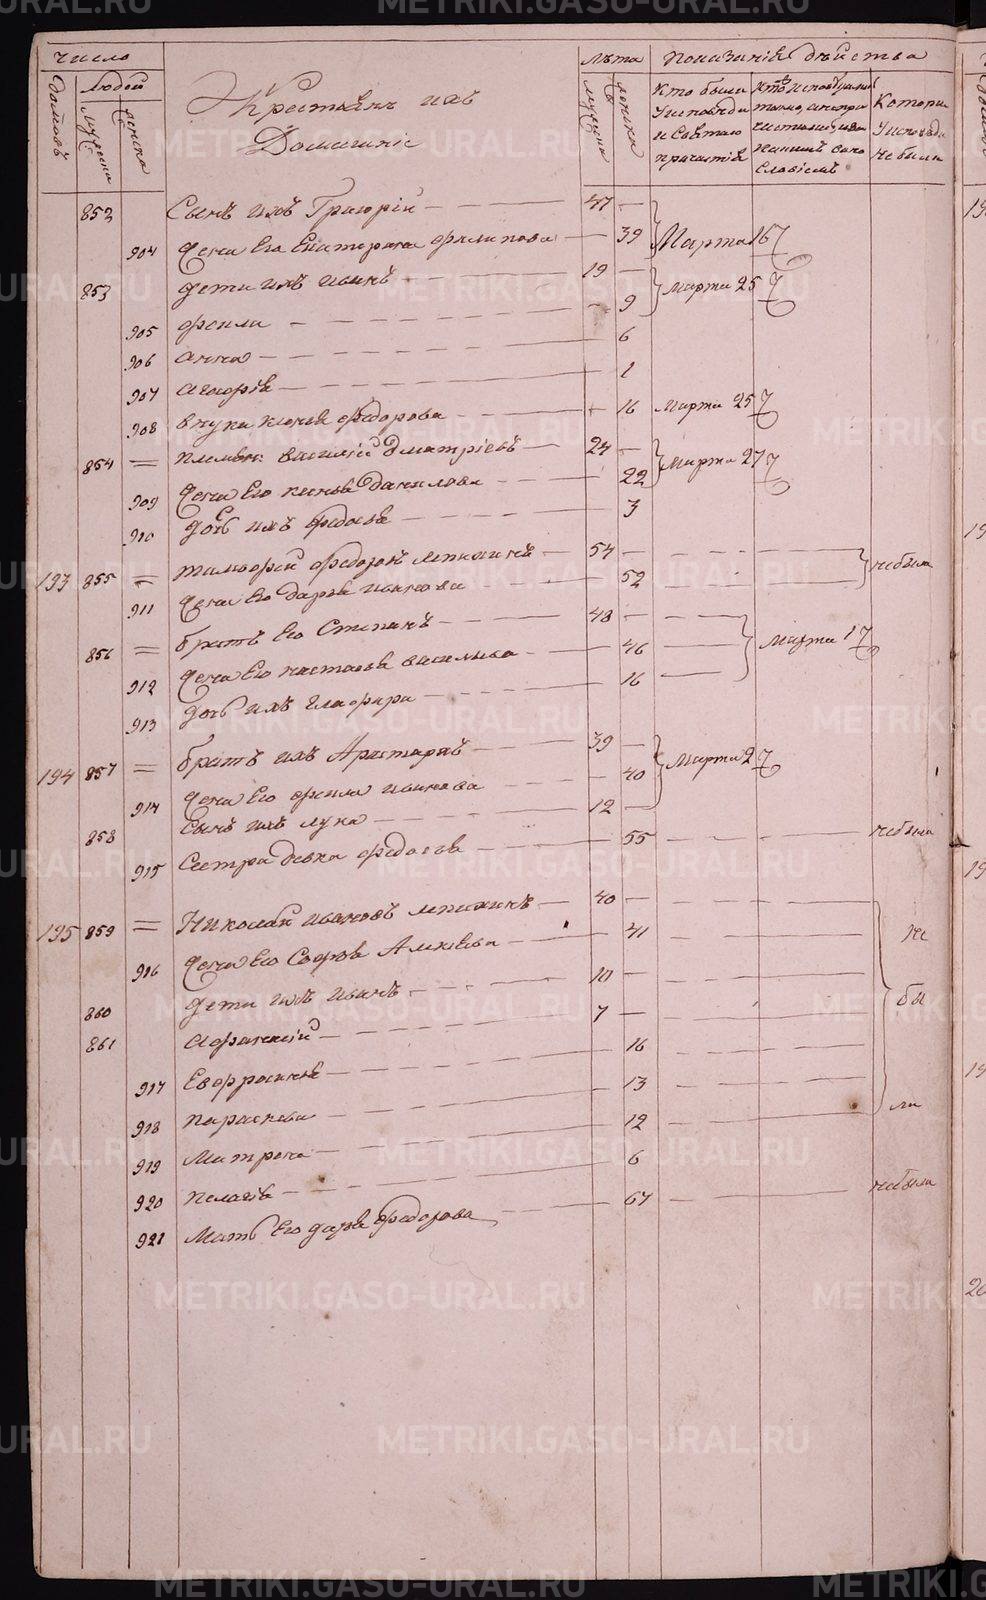 METRIKI.GASO-URAL.RU
число
домовъ
людей
мужеска
женска
Крестьянъ ихъ
Домашніе
лѣта
мужеска
женска
Показаніе дѣйства
Кто были у исповѣди и Святаго причастія
Которыи у исповѣди не были
852 Сынъ ихъ Григорій 47
904 жена Его Екатерина Филипова 39 Марта 16
853 дети ихъ Иванъ 19 Марта 25
905 Фекла 9
906 Анна 6
907 Агафія 1
908 внука Ксенья Федорова 16 Марта 25
854 Василій Дмитріевъ 24 Марта 27
909 жена Его Ксенья Данилова 22
910 дочь ихъ Федосья 3
193 855 Тимофей Федоровъ 54 не были
911 жена Его Дарья Иванова 52
856 братъ Его Степанъ 48 Марта 17
912 жена Его Настасья Васильева 46
913 дочь ихъ Глафира 16
194 857 братъ ихъ Аристархъ 39 Марта 27
914 жена Его Фекла Иванова 40
858 Сынъ ихъ Лука 12
915 Сестра девка Федосья 55 не была
195 859 Николай Ивановъ 40 не
916 жена Его Софья 41
860 дети ихъ Иванъ 10 бы
861 Афанасій 7
917 Евфросинья 16
918 Парасковья 13 ли
919 Матрена 12
920 Пелагея 6
921 Мать Его Дарья Федорова 67 не была